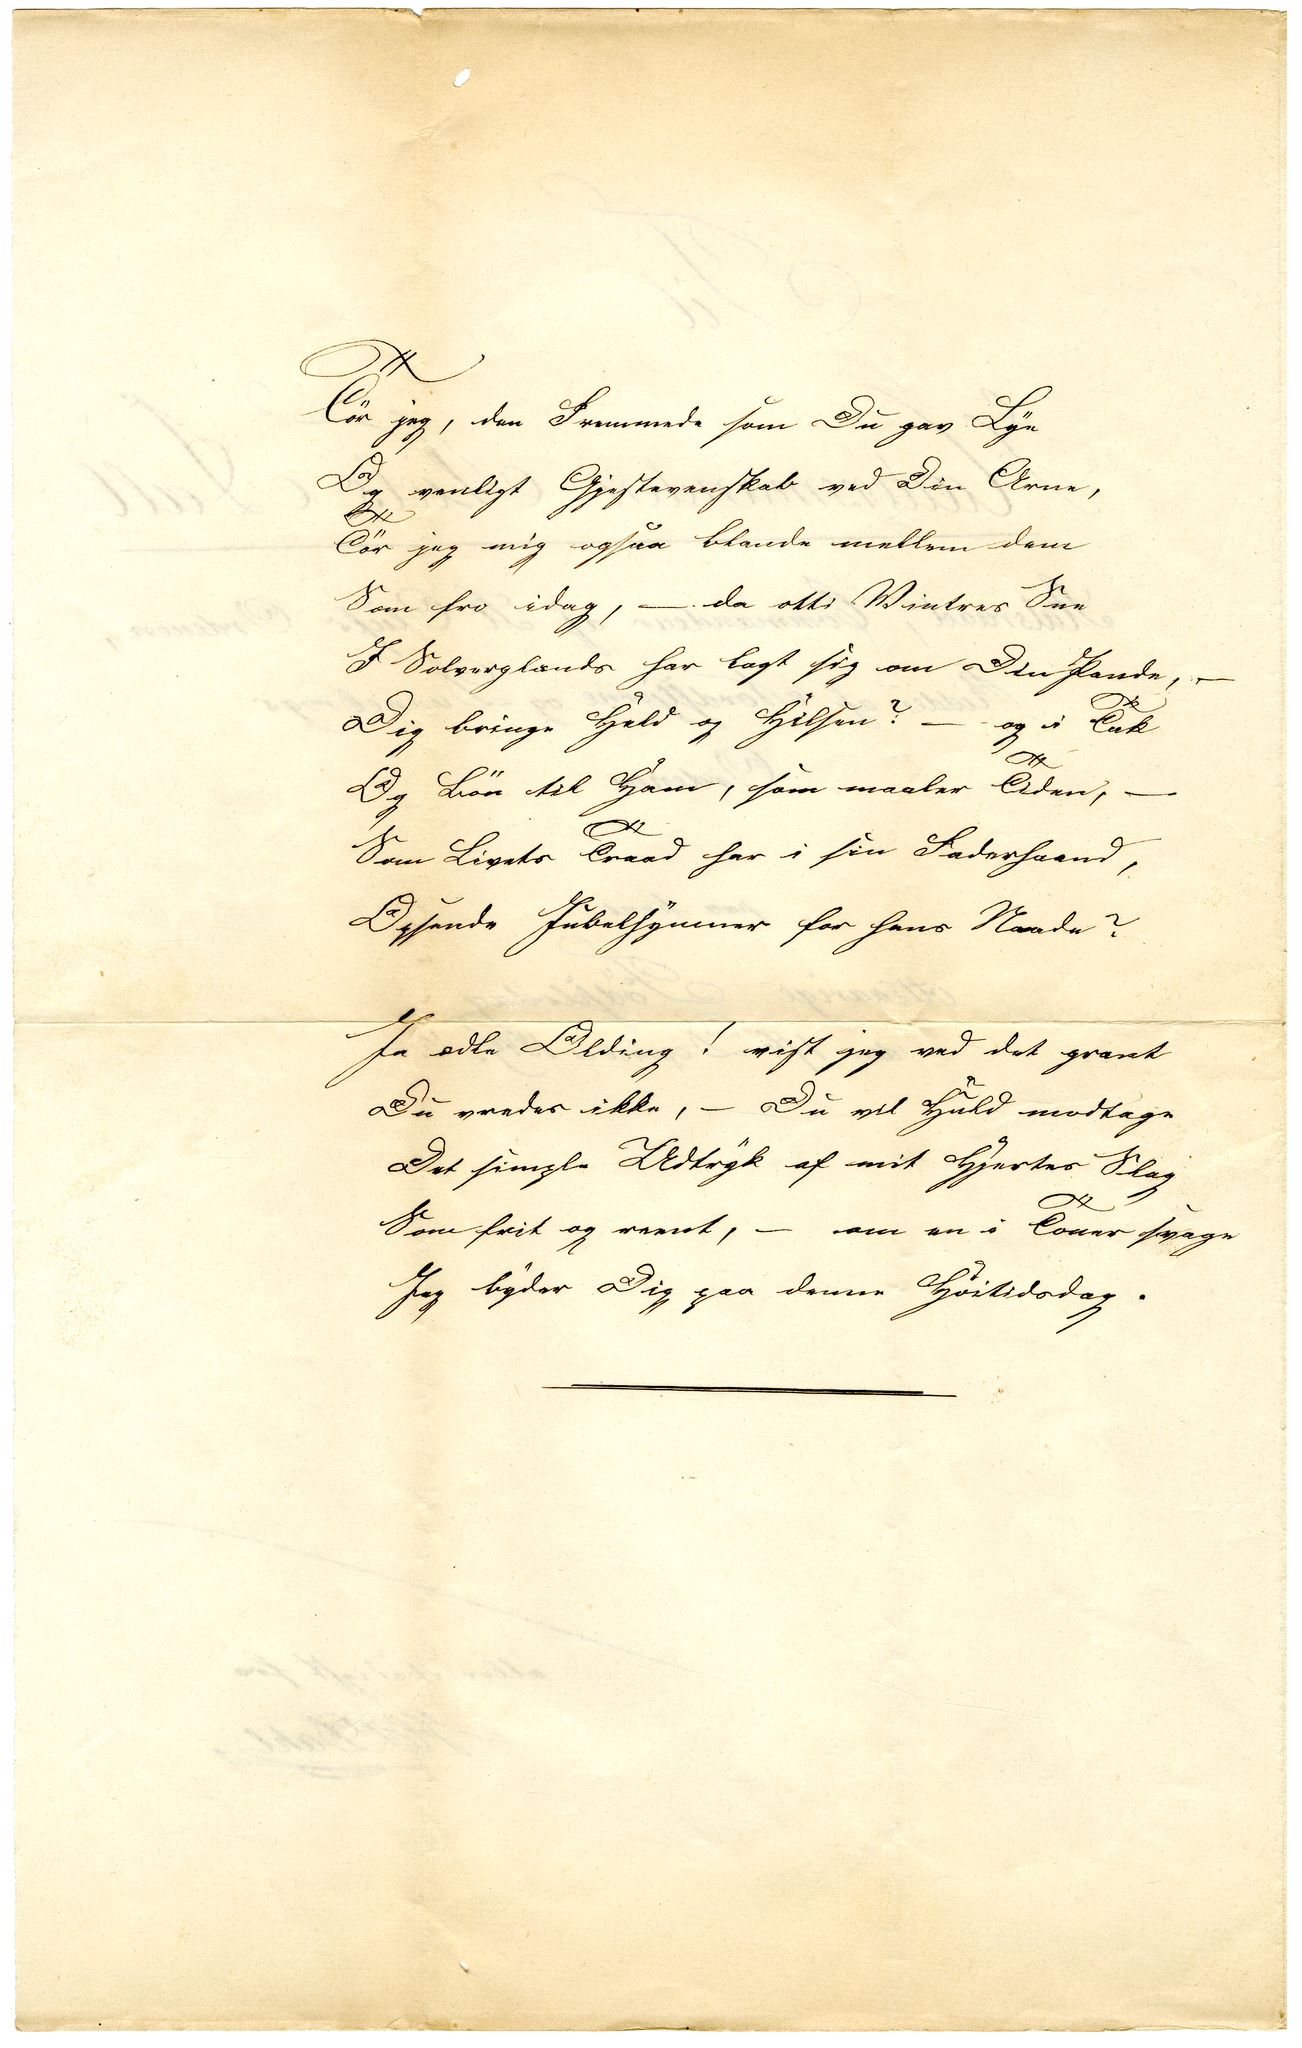 Tör jeg, den Fremmede som Du gav Lÿe
Og venligt Gjestevenskab ved Din Arne,
Tör jeg mig ogsaa blande mellem dem
Som fro idag, — da otti Vintres Sne
I Solverglands har lagt sig om Din Pande, —
Dig bringe Held og Hilsen? — og i Tak
Og Bön til Ham, som maaler Tiden, —
Som Livets Traad har i sin Faderhaand,
Opsende Jubelhÿmner for hans Naade?
Ja ædle Olding! vist jeg ved det grant
Du vredes ikke, — Du vil Huld modtage
Det simple Udtrÿk af mit Hjertes Slag
Som frit og reent, — om en i Toner svage
Jeg bÿder Dig paa denne Höitidsdag.